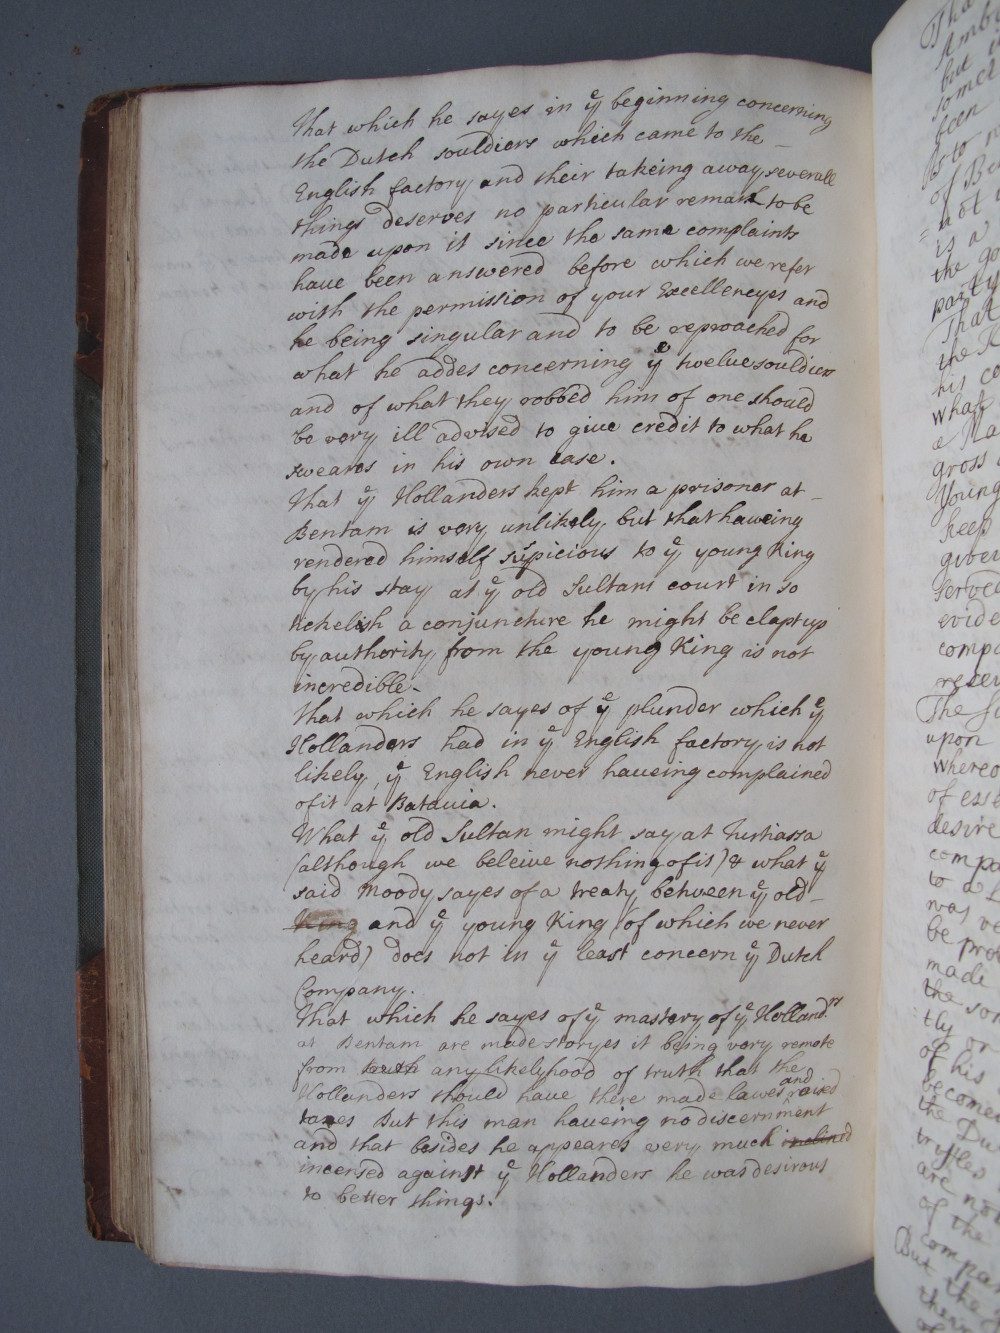 That which he sayes in yͤ beginning concerning
the Dutch souldiers which came to the
English factory and their takeing away severall
things deserves no particular remark to be
made upon it since the same complaints
have been answered before which we refer
with the permission of your Excellencyes and
he being singular and to be reproached for
what he addes concerning yͤ twelve souldiers
and of what they robbed him of one should
be very ill advised to give credit to what he
sweares in his own case.
That yͤ Hollanders kept him a prisoner at
Bentam is very unlikely, but that haveing
rendered himself suspicious to yͤ young King
by his stay at yͤ old Sultans court in so
tickelish a conjuncture he might be clapt up
by authority from the young King is not
incredible.
That which he sayes of yͤ plunder which yͤ
Hollanders had in yͤ English factory is not
likely, yͤ English never haveing complained
of it at Batavia.
What yͤ old Sultan might say at Turtiassa
(although we beleive nothing of it) & what yͤ
said Moody sayes of a treaty between yͤ old
King and yͤ young King (of which we never
heard) does not in yͤ least concern yͤ Dutch
Company.
That which he sayes of yͤ mastery of yͤ Hollandʳˢ
at Bentam are made storyes it being very remote
from truth any likelyhood of truth that the
Hollanders should have there made lawes and raised
taxes But this man haveing no discernment
and that besides he appeares very much inclined
incensed against yͤ Hollanders he was desirous
to better things.
Tha
Amb
but i
somet
been
As to
of Be
not
is a
the go
party
That
the K
his co
what
a Ma
gross
Young
keep
given
served
evide
compa
receiv
The so
upon
whereo
of est
desire
compa
to a
was ve
be pro
made
the so
tly or
of his
become
the Du
tryfles
are not
of the
compan
But the
there